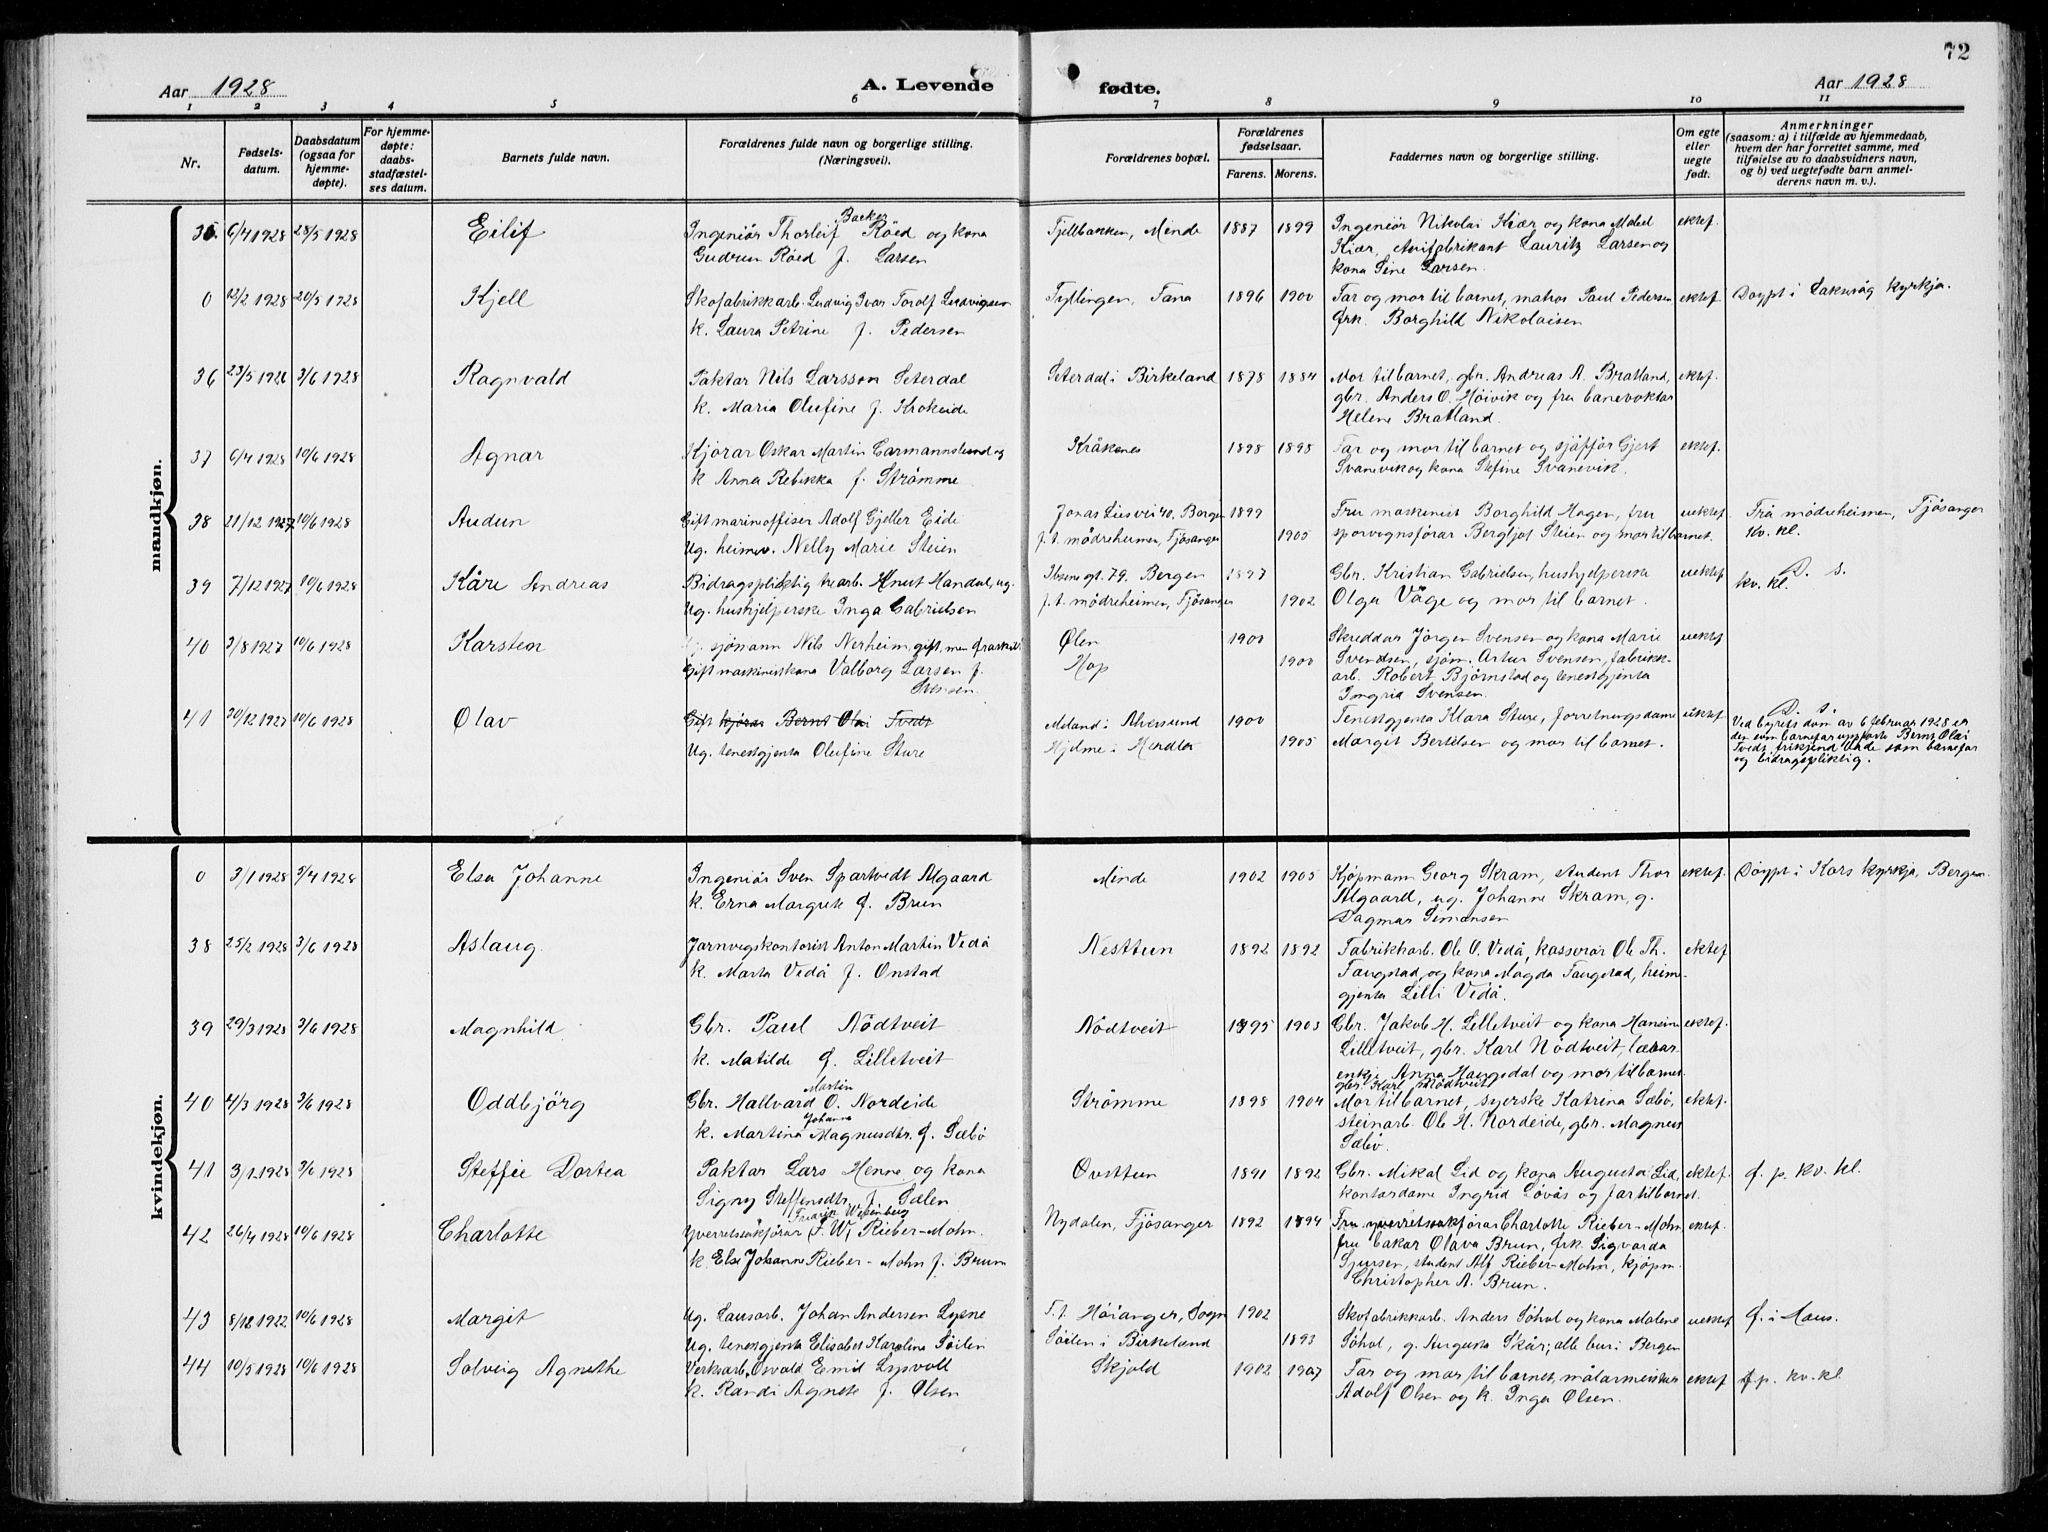 72
Aar 1928
A. Levende
fødte.
Aar 1928
1 2 3 4 5 6 7 8 9 10 11
Nr.
Fødsels-
datum.
Daabsdatum
(ogsaa for
hjemme-
døpte).
For hjemme-
døpte:
daabs-
stadfæstel-
ses datum.
Barnets fulde navn.
Forældrenes fulde navn og borgerlige stilling.
(Næringsvei).
Forældrenes bopæl.
Forældrenes
fødselsaar.
Farens. Morens.
Faddernes navn og borgerlige stilling.
Om egte
eller
uegte
født.
Anmerkninger
(saasom: a) i tilfælde av hjemmedaab,
hvem der har forrettet samme, med
tilføielse av to daabsvidners navn,
og b) ved uegtefødte barn anmel-
derens navn m. v.).
mandkjøn.
35. 6/4 1928 28/5 1928 Eilif
Backer
Ingeniör Thorleif Röed og kona
Gudrun Röed f. Larsen
Fjellbakken, Minde 1887 1899
Ingeniör Nikolai Kiær og kona Mabel
Kiær, Lauritz Larsen og
kona Sine Larsen.
ektef.
0 12/2 1928 20/5 1928 Kjell
Skofabrikkarb. Ludvig Ivar Torolf Ludvigsen
k. Laura Petrine f. Pedersen
Fyllingen, Fana 1896 1900
Far og mor til barnet, matros Paul Pedersen
frk. Borghild Nikolaisen
ektef. Döypt i Laksevåg kyrkja.
36 23/5 1928 3/6 1928 Ragnvald
Paktar Nils Larsson Seterdal
k. Maria Olufine f. Krokeide
Seterdal i Birkeland 1878 1884
Mor til barnet, gbr. Andreas A. Bratland,
gbr. Anders O. Höivik og fru banevoktar
Helene Bratland
ektef.
37 6/4 1928 10/6 1928 Agnar
Kjörar Oskar Martin Garmannslund og
k. Anna Rebikka f. Strömme
Kråkenes 1898 1898
Far og mor til barnet og sjåfför Gjert
Svanevik og kona Stefine Svanevik.
ektef.
38 21/12 1927 10/6 1928 Audun
Gift marineoffiser Adolf Gjeller Eide
Ug. heimev. Nelly Marie Steien
Jonas Liesvei 40. Bergen 1899
f. t. mödreheimen, Fjösanger 1905
Fru maskinist Borghild Hagen, fru
sporvognsförar Bergljot Steien og mor til barnet.
uektef. Frå mödreheimen, Fjösanger
kv. kl.
39 7/12 1927 10/6 1928 Kåre Andreas
Bidragspliktig trearb. Knut Mandal, ug.
Ug. hushjelperske Inga Gabrielsen
Ibsens gt. 79. Bergen 1897
f. t. mödreheimen, Fjösanger 1902
Gbr. Kristian Gabrielsen, hushjelperske
Olga Våge og mor til barnet.
uektef. D. s.
kv. kl.
40 3/8 1927 10/6 1928 Karsten
sjömann Nils Nerheim, gift, men fraskilt
Gift maskinistkona Valborg Larsen f.
Svensen.
Ölen 1900
Hop 1900
Skreddar Jörgen Svensen og kona Marie
Svendsen, sjöm. Artur Svensen, fabrikk-
arb. Robert Björnstad og tenestgjenta
Ingrid Svensen.
uektef
41 30/12 1927 10/6 1928 Olav
Gift kjörar Bernt Olai Tvedt
Ug. tenestgjenta Olufine Sture
Meland i Alversund 1900
Hjelme i Herdla 1905
Tenestgjenta Klara Sture, forretningsdame
Margit Bertelsen og mor til barnet.
uektef. D. s.
Ved byrets dom av 6 februar 1928 er
den som barnefar uppförte Bernt Olai
Tvedt frikjend både som barnefar
og bidragspliktig.
kvindekjøn.
0 3/1 1928 5/4 1928 Elsa Johanne
Ingeniör Sven Spartvedt Algaard
k. Erna Margrete f. Brun
Minde 1902 1905
Kjöpmann Georg Skram, student Thor
Algaard, ug. Johanne Skram, g.
Dagmar Simonsen
ektef. Döypt i Kors kyrkja, Bergen.
38 25/2 1928 3/6 1928 Aslaug.
Jarnvegskontorist Anton Martin Vedå
k. Marta Vedå f. Onstad
Nesttun 1892 1892
Fabrikkarb. Ole O. Vedå, kasserar Ole Th.
Faugstad og kona Magda Faugstad, heime-
gjenta Lilli Vedå.
ektef
39 29/3 1928 3/6 1928 Magnhild
Gbr. Paul Nödtveit
k. Matilde f. Lilletveit
Nödtveit 1895 1903
Gbr. Jakob H. Lilletveit og kona Hansine
Lilletveit, gbr. Karl Nödtveit, lærar-
enkje Anna Haugsdal og mor til barnet.
gbr. Karl Nödtveit
ektef.
40 4/3 1928 3/6 1928 Oddbjörg
Martin
Gbr. Hallvard O. Nordeide
Johanna
k. Martina Magnusdtr. f. Sæbö
Strömme 1898 1904
Mor til barnet, syerske Katrina Sæbö,
steinarb. Ole H. Nordeide, gbr. Magnus
Sæbö
ektef.
41 3/1 1928 3/6 1928 Steffie Dortea
Paktar Lars Henne og kona
Signy Steffensdtr. f. Sælen
Övsttun 1891 1892
Gbr. Mikal Lid og kona Augusta Lid,
kontordame Ingrid Lövås og far til barnet.
ektef. f. p. kv. kl.
42 26/4 1928 10/6 1928 Charlotte
Fredrik Wesenberg
Yverrettssakförar F. W. Rieber-Mohn.
k. Else Johanne Rieber-Mohn f. Brun
Nydalen, Fjösanger 1892 1894
Fru yverrettssakförar Charlotte Rieber-Mohn,
fru bakar Olava Brun, frk. Sigvarda
Sjursen, student Alf Rieber-Mohn, kjöpm.
Christopher A. Brun.
ektef.
43 8/12 1922 10/6 1928 Margit
Ug. Lausarb. Johan Andersen Lysne
Ug. tenestgjenta Elisabet Karoline Söilen
F. t. Höianger, Sogn 1902
Söilen i Birkeland 1893
Skofabrikkarb. Anders Söhol og kona Malene
Söhol, g. Augusta Skår; alle bur i Bergen
uektef f. i Haus.
44 10/5 1928 10/6 1928 Solveig Agnethe
Verksarb. Osvald Emil Lysvoll
k. Randi Agnete f. Olsen
Skjold 1902 1907
Far og mor til barnet, målarmeister
Adolf Olsen og k. Inga Olsen.
ektef f. p. kv. kl.